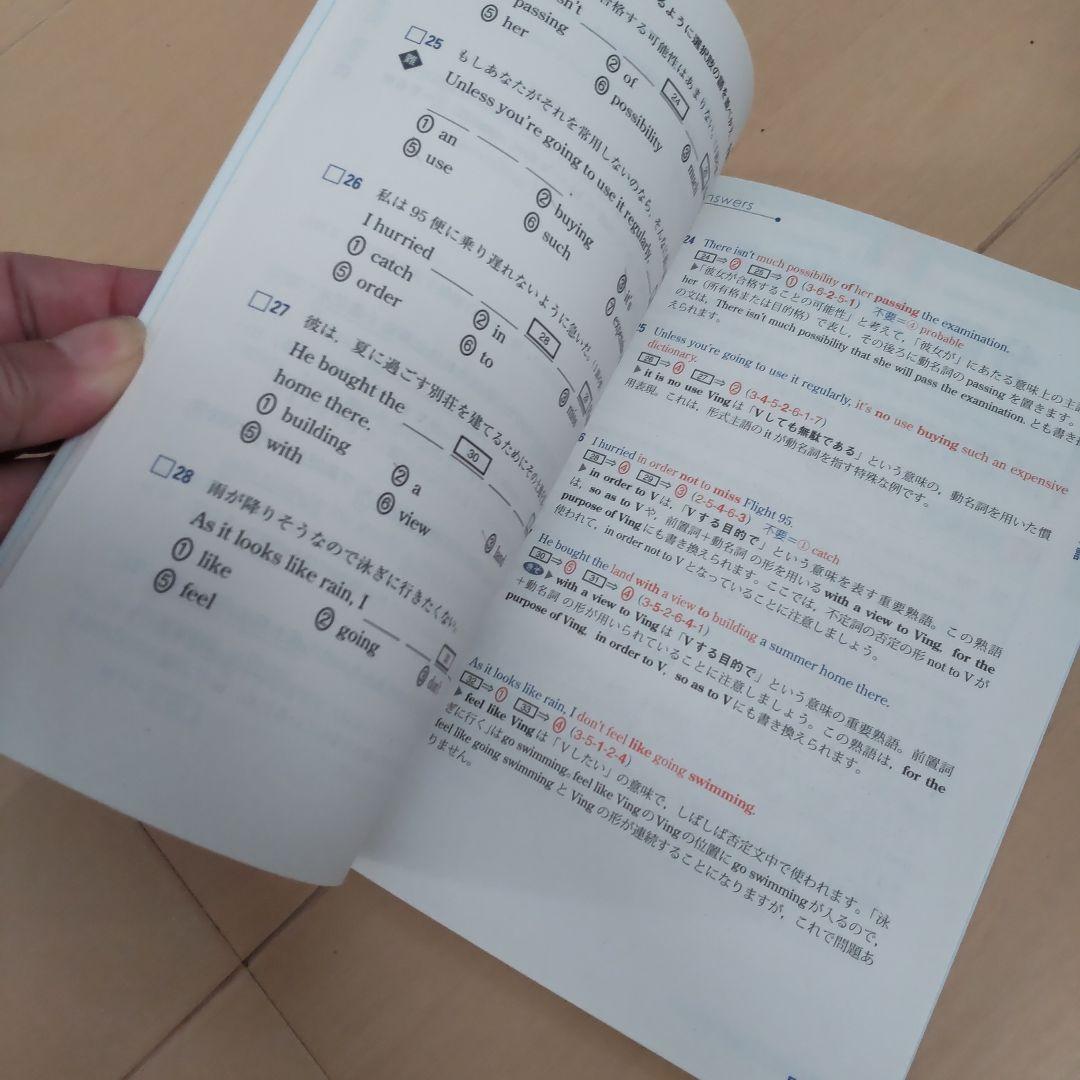 るように選択肢の語を並べか
合格する可能性はあまりない。
passing
② of
24
③ much
⑤ her
⑥ possibility
25
難
もしあなたがそれを常用しないのなら、そんな
Unless you're going to use it regularly,
① an
② buying
③ it's
⑤ use
⑥ such
26
私は95便に乗り遅れないように急いだ。
I hurried
28
① catch
② in
⑤ order
⑥ to
27
彼は、夏に過ごす別荘を建てるためにその土地
He bought the
30
home there.
① building
② a
③ land
⑤ with
⑥ view
28
雨が降りそうなので泳ぎに行きたくない。
As it looks like rain, I
① like
② going
③ don't
⑤ feel
nswers
24 There isn't much possibility of her passing the examination.
24⇒② 25⇒① (3-6-2-5-1) 不要=④ probable
▶「彼女が合格することの可能性」と考えて，「彼女が」にあたる意味上の主語
her（所有格または目的格）で表し，その後ろに動名詞の passing を置きます。
の文は，There isn't much possibility that she will pass the examination. とも書き
えられます。
5 Unless you're going to use it regularly, it's no use buying such an expensive
dictionary.
26⇒④ 27⇒② (3-4-5-2-6-1-7)
▶ it is no use Ving は「Vしても無駄である」という意味の，動名詞を用いた慣
用表現。これは，形式主語の it が動名詞を指す特殊な例です。
6 I hurried in order not to miss Flight 95.
28⇒④ 29⇒③ (2-5-4-6-3) 不要=① catch
▶ in order to V は，「Vする目的で」という意味を表す重要熟語。この熟語
は，so as to V や，前置詞＋動名詞 の形を用いる with a view to Ving，for the
purpose of Ving にも書き換えられます。ここでは，不定詞の否定の形 not to V が
使われて，in order not to V となっていることに注意しましょう。
He bought the land with a view to building a summer home there.
30⇒⑤ 31⇒④ (3-5-2-6-4-1)
▶ with a view to Ving は「Vする目的で」という意味の重要熟語。前置詞
＋動名詞 の形が用いられていることに注意しましょう。この熟語は，for the
purpose of Ving，in order to V，so as to V にも書き換えられます。
As it looks like rain, I don't feel like going swimming.
32⇒① 33⇒④ (3-5-1-2-4)
▶ feel like Ving は「Vしたい」の意味で，しばしば否定文中で使われます。「泳
ぎに行く」は go swimming。feel like Ving の Ving の位置に go swimming が入るので，
feel like going swimming と Ving の形が連続することになりますが，これで問題あ
りません。